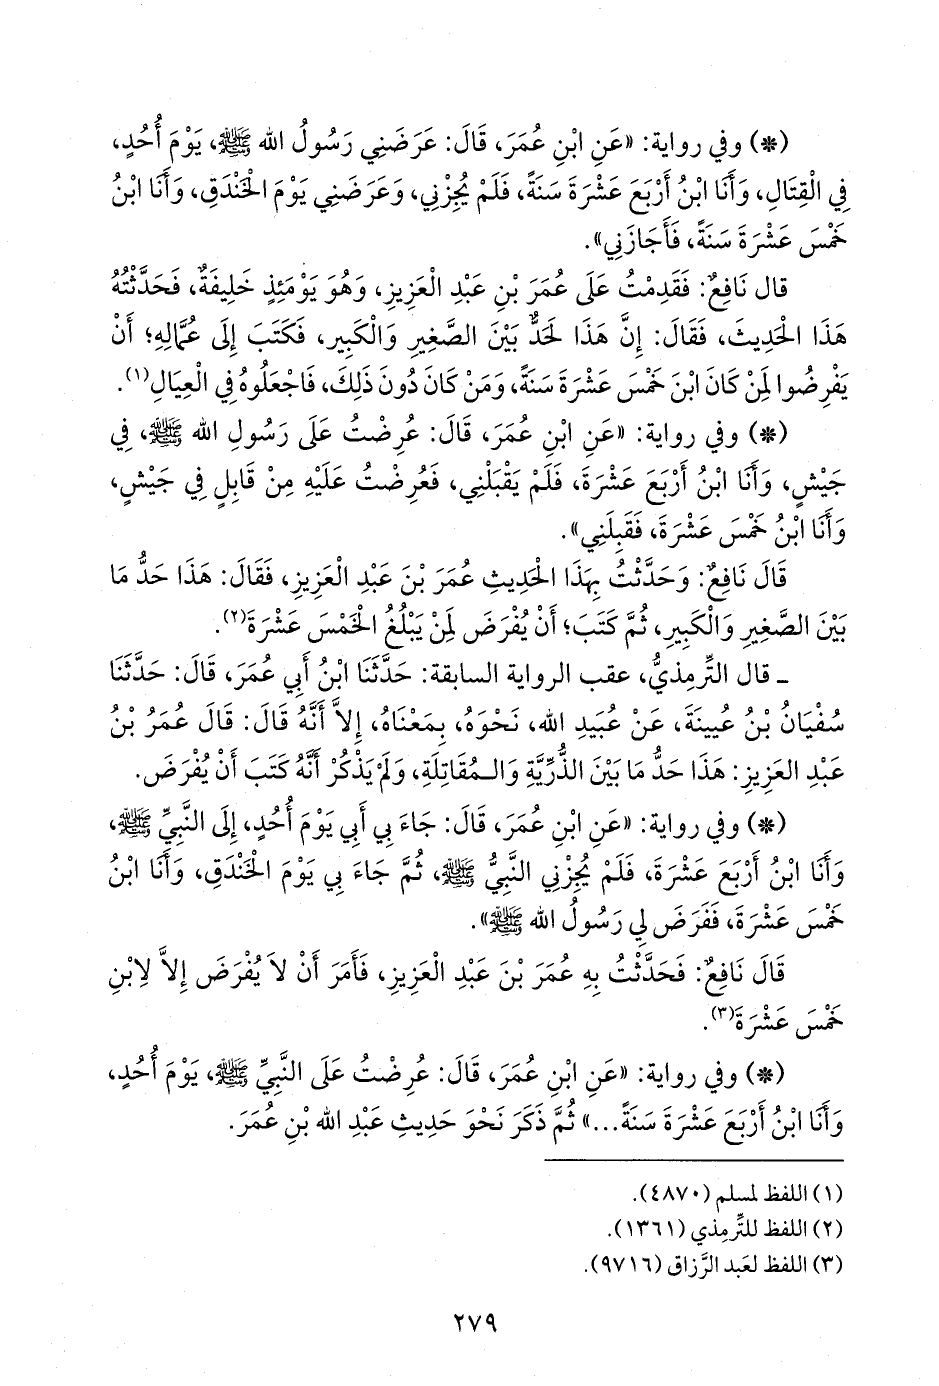 (*) وفي رواية: «عَنِ ابْنِ عُمَرَ، قَالَ: عَرَضَنِي رَسُولُ الله ﷺ، يَوْمَ أُحُدٍ،
فِي الْقِتَالِ، وَأَنَا ابْنُ أَرْبَعَ عَشْرَةَ سَنَةً، فَلَمْ يُجِزْنِي، وَعَرَضَنِي يَوْمَ الْخَنْدَقِ، وَأَنَا ابْنُ
خَمْسَ عَشْرَةَ سَنَةً، فَأَجَازَنِي».
قال نَافِعٌ: فَقَدِمْتُ عَلَى عُمَرَ بْنِ عَبْدِ الْعَزِيزِ، وَهُوَ يَوْمَئِذٍ خَلِيفَةٌ، فَحَدَّثْتُهُ
هَذَا الْحَدِيثَ، فَقَالَ: إِنَّ هَذَا لَحَدٌّ بَيْنَ الصَّغِيرِ وَالْكَبِيرِ، فَكَتَبَ إِلَى عُمَّالِهِ؛ أَنْ
يَفْرِضُوا لِمَنْ كَانَ ابْنَ خَمْسَ عَشْرَةَ سَنَةً، وَمَنْ كَانَ دُونَ ذَلِكَ، فَاجْعَلُوهُ فِي الْعِيَالِ(١).
(*) وفي رواية: «عَنِ ابْنِ عُمَرَ، قَالَ: عُرِضْتُ عَلَى رَسُولِ الله ﷺ، فِي
جَيْشٍ، وَأَنَا ابْنُ أَرْبَعَ عَشْرَةَ، فَلَمْ يَقْبَلْنِي، فَعُرِضْتُ عَلَيْهِ مِنْ قَابِلٍ فِي جَيْشٍ،
وَأَنَا ابْنُ خَمْسَ عَشْرَةَ، فَقَبِلَنِي».
قَالَ نَافِعٌ: وَحَدَّثْتُ بِهَذَا الْحَدِيثِ عُمَرَ بْنَ عَبْدِ الْعَزِيزِ، فَقَالَ: هَذَا حَدُّ مَا
بَيْنَ الصَّغِيرِ وَالْكَبِيرِ، ثُمَّ كَتَبَ؛ أَنْ يُفْرَضَ لِمَنْ يَبْلُغُ الْخَمْسَ عَشْرَةَ(٢).
ـ قال التِّرمِذيُّ، عقب الرواية السابقة: حَدَّثَنَا ابْنُ أَبِي عُمَرَ، قَالَ: حَدَّثَنَا
سُفْيَانُ بْنُ عُيينَةَ، عَنْ عُبَيدِ الله، نَحْوَهُ، بِمَعْنَاهُ، إِلاَّ أَنَّهُ قَالَ: قَالَ عُمَرُ بْنُ
عَبْدِ العَزِيزِ: هَذَا حَدُّ مَا بَيْنَ الذُّرِّيَّةِ وَالـمُقَاتِلَةِ، وَلَمْ يَذْكُرْ أَنَّهُ كَتَبَ أَنْ يُفْرَضَ.
(*) وفي رواية: «عَنِ ابْنِ عُمَرَ، قَالَ: جَاءَ بِي أَبِي يَوْمَ أُحُدٍ، إِلَى النَّبِيِّ ﷺ،
وَأَنَا ابْنُ أَرْبَعَ عَشْرَةَ، فَلَمْ يُجِزْنِي النَّبِيُّ ﷺ، ثُمَّ جَاءَ بِي يَوْمَ الْخَنْدَقِ، وَأَنَا ابْنُ
خَمْسَ عَشْرَةَ، فَفَرَضَ لِي رَسُولُ الله ﷺ».
قَالَ نَافِعٌ: فَحَدَّثْتُ بِهِ عُمَرَ بْنَ عَبْدِ الْعَزِيزِ، فَأَمَرَ أَنْ لاَ يُفْرَضَ إِلاَّ لِابْنِ
خَمْسَ عَشْرَةَ(٣).
(*) وفي رواية: «عَنِ ابْنِ عُمَرَ، قَالَ: عُرِضْتُ عَلَى النَّبِيِّ ﷺ، يَوْمَ أُحُدٍ،
وَأَنَا ابْنُ أَرْبَعَ عَشْرَةَ سَنَةً...» ثُمَّ ذَكَرَ نَحْوَ حَدِيثِ عَبْدِ الله بْنِ عُمَرَ.
(١) اللفظ لمسلم (٤٨٧٠).
(٢) اللفظ للتِّرمِذي (١٣٦١).
(٣) اللفظ لعَبد الرَّزاق (٩٧١٦).
٢٧٩